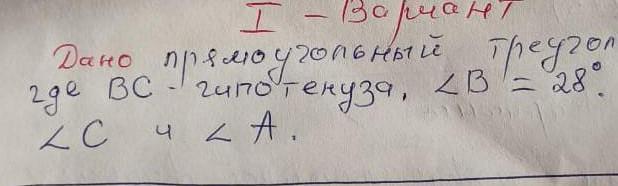 I - Вариант
Дано прямоугольный треугол
где BC - гипотенуза, ∠B = 28°.
∠C и ∠A.